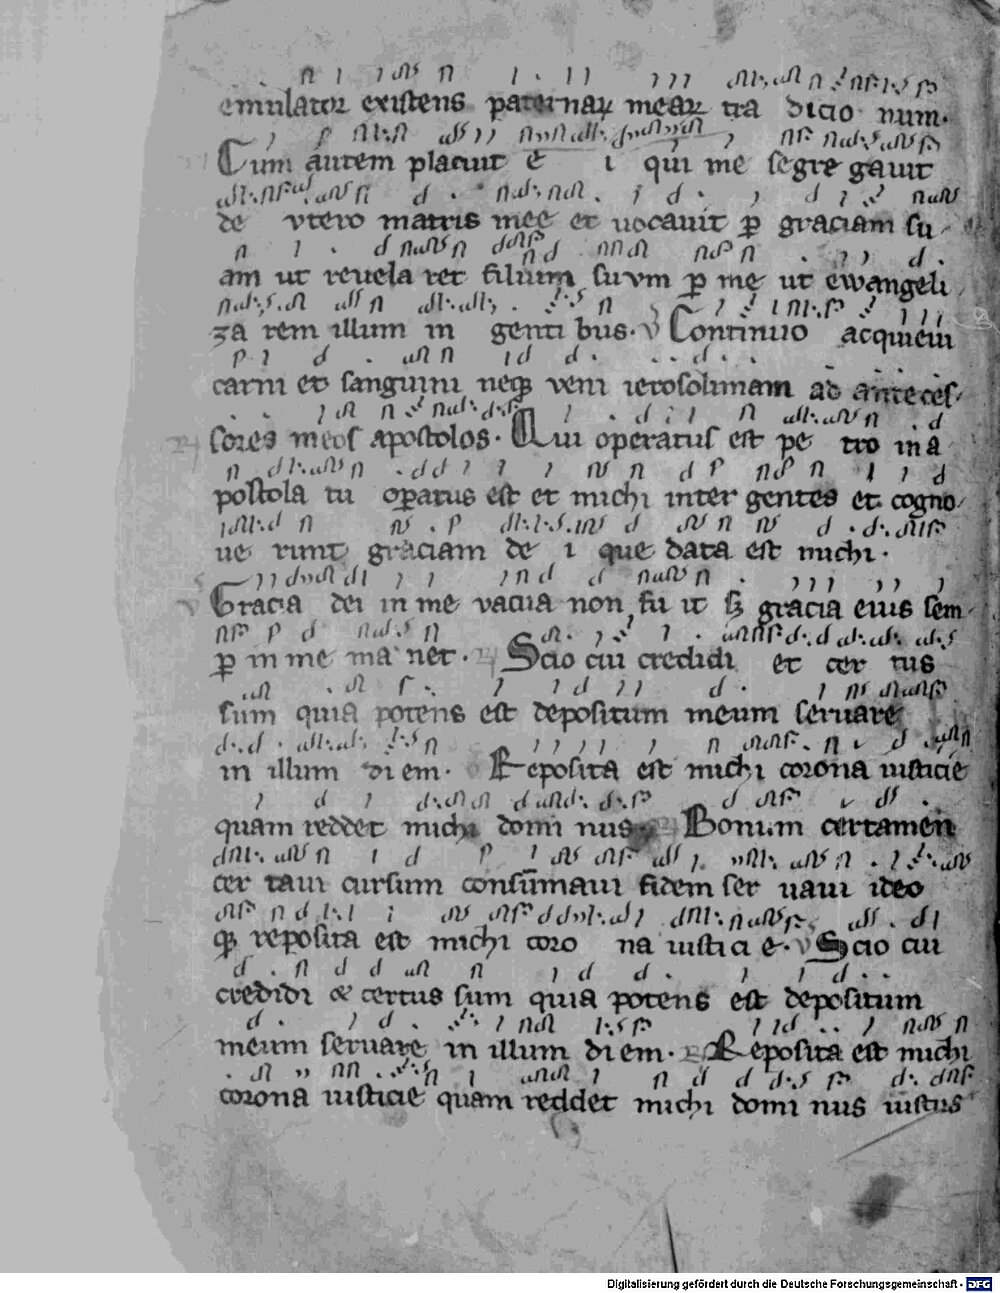 emulator existens paternaꝝ meaꝝ tra dicio num.
Cum autem placuit e i qui me segre gauit
de vtero matris mee et uocauit ꝑ graciam su
am ut reuela ret filium suvm ꝑ me ut ewangeli
za rem illum in genti bus. v Continuo acquieui
carni et sanguini neqꝫ veni ierosolimam ad anteces
sores meos apostolos. Qui operatus est pe tro in a
postola tu oꝑatus est et michi inter gentes et cogno
ue runt graciam de i que data est michi.
v Gracia dei in me vacua non fu it sꝫ gracia eius sem
ꝑ in me ma net. Scio cui credidi et cer tus
sum quia potens est depositum meum seruare
in illum di em. Reposita est michi corona iusticie
quam reddet michi domi nus. Bonum certamen
cer taui cursum consūmaui fidem ser uaui ideo
qꝫ reposita est michi coro na iustici e. v Scio cui
credidi & certus sum quia potens est depositum
meum seruare in illum di em. Reposita est michi
corona iusticie quam reddet michi domi nus iustus
Digitalisierung gefördert durch die Deutsche Forschungsgemeinschaft - DFG